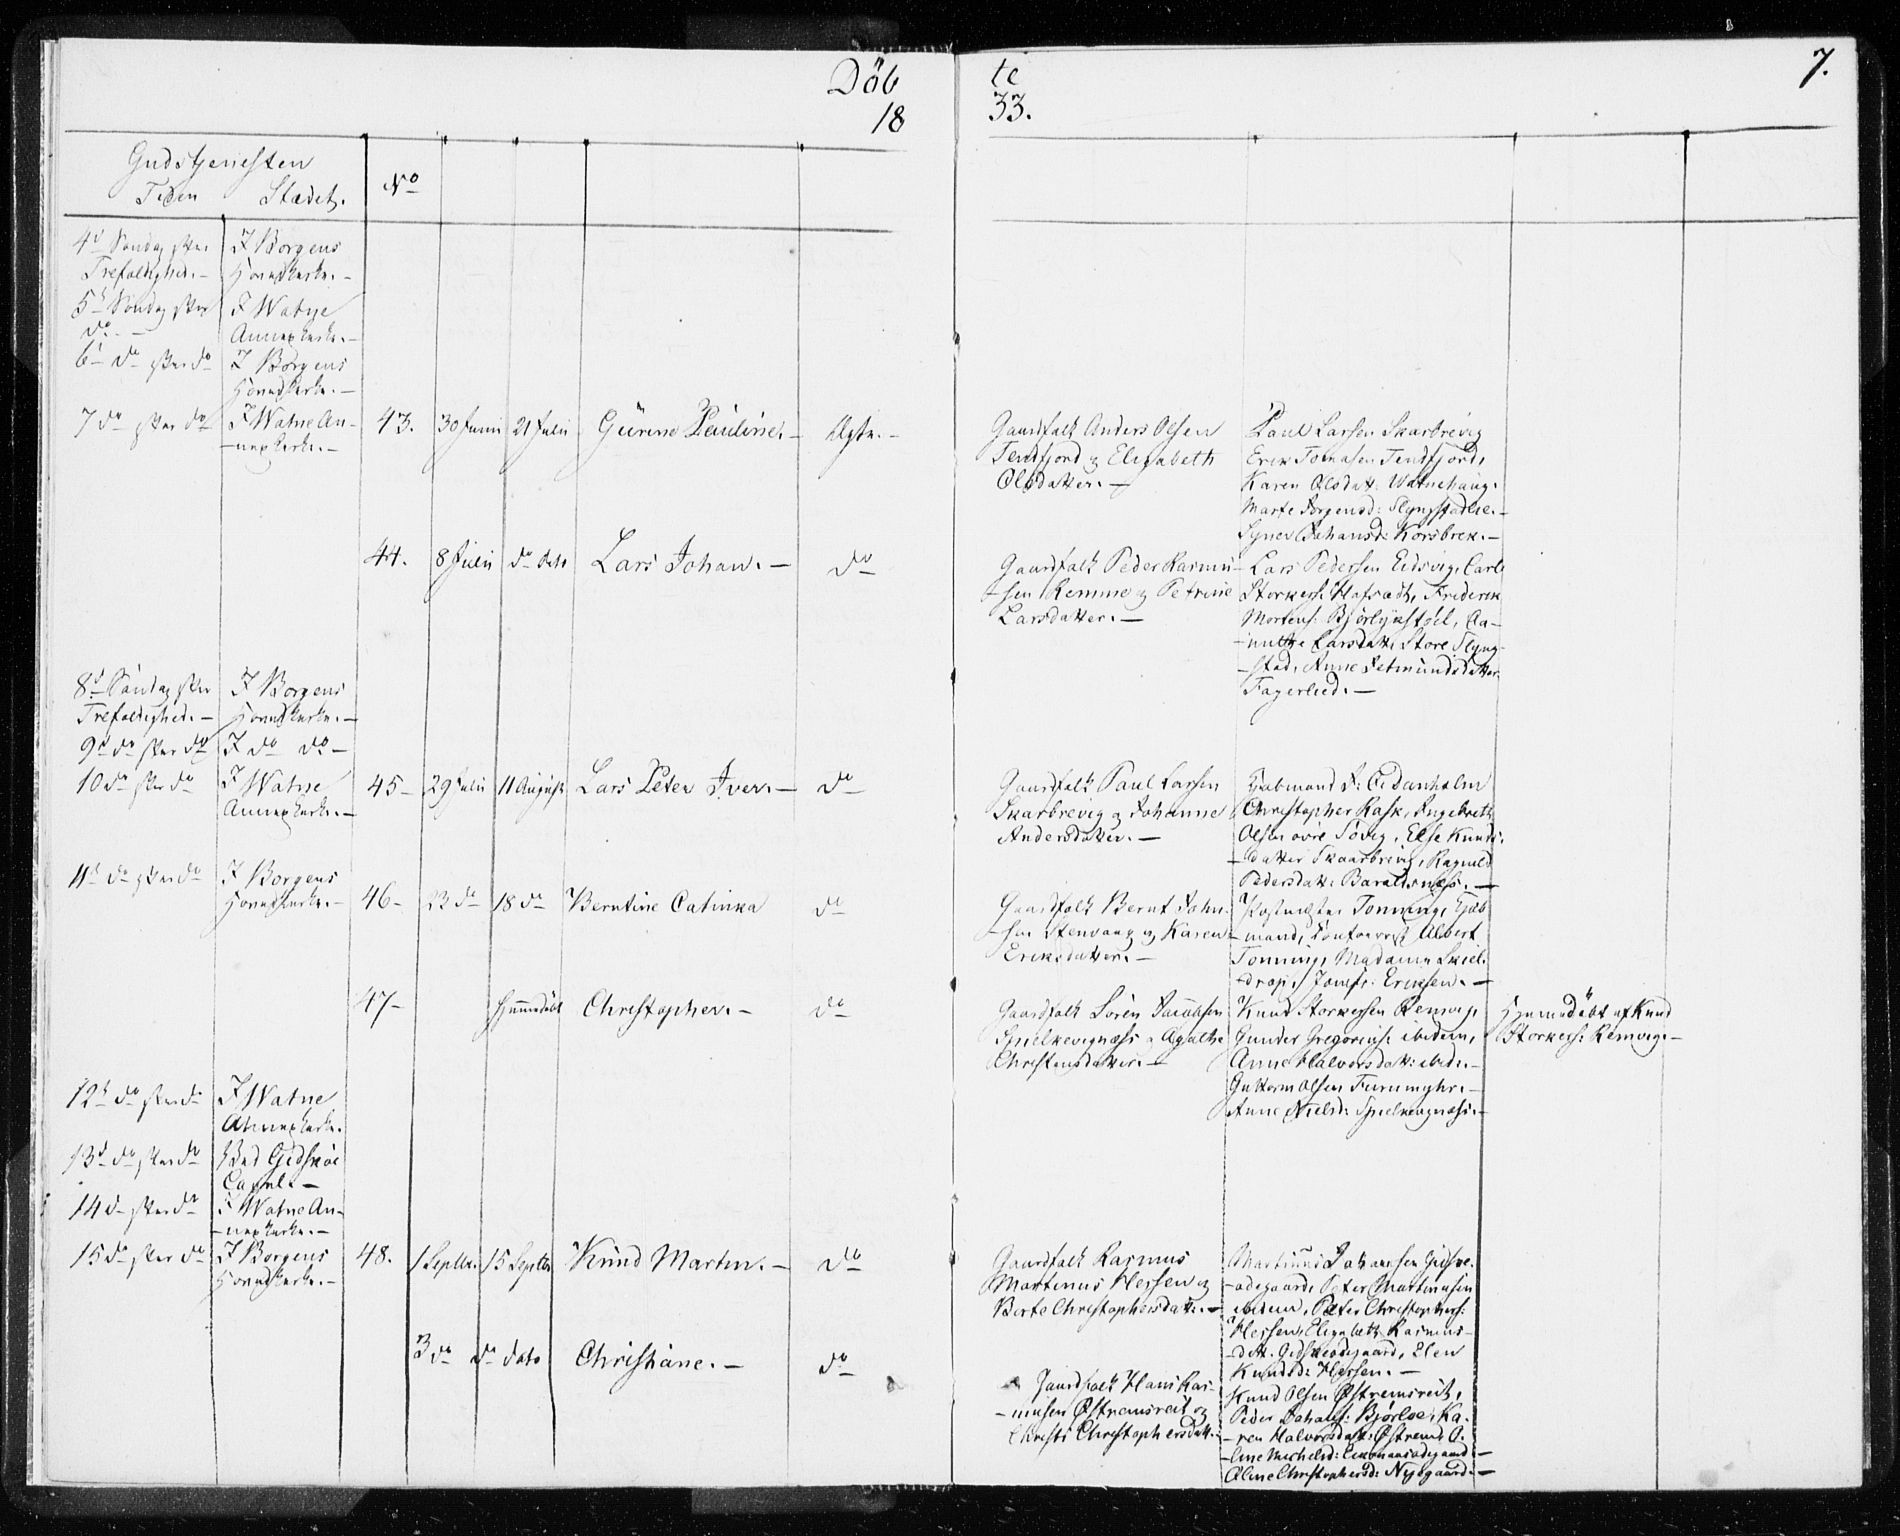 Döb te
18 33.
7.
Gudstjenesten
Tiden Stædet.
No
4d Søndag efter I Borgens
Trefoldighed. – Hovedkirke. –
5t Søndag efter I Watne
do – Annexkirke. –
6t do efter do I Borgens
Hovedkirke. –
7 do efter do I Watne An-
-nexkirke. –
43. 30 Junii 21 Julii Gurine Pauline. – Ægte. –
Gaardfolk Anders Olsen
Tendfjord og Elisabeth
Olsdatter. –
Paul Larsen Skarbrevig
Erik Tomasen Tendfjord,
Karen Olsdat: Watnehaug.
Marte Jorgensd: Slyngstadlie. –
Synev Johansd: Korsbrek. –
44. 8 Julii do dato Lars Johan. – do
Gaardfolk Peder Rasmu-
-sen Remme og Petrine
Larsdatter. –
Lars Pedersen Eidsvig, Carl
Storkers: Hofsædt, Friderik
Mortens: Bjørlykstøel, Aa-
Larsdatt: Store Slyng-
-stad, Anne Jetmundsdatter
Fagerlied. –
8d Søndag efter I Borgens
Trefoldighed. – Hovedkirke. –
9d do efter do I do do –
10 do efter do I Watne
Annexkirke. –
45 – 29 Julii 11 August Lars Peter Iver. – do
Gaardfolk Paul Larsen
Skarbrevig og Johanne
Andersdatter. –
Kiøbmand
Christopher Rask, Ingebreth
Olsen øvre Søvig, Else Knuds-
-datter Skaarbrevig, Ragnild
Pedersdat: Baraldsnæs. –
11t do efter do I Borgens
Hovedkirke. –
46 – 23 do 18 do Berntine Catinka do
Gaardfolk Bernt John-
-sen Stenvaag og Karen
Eriksdatter. –
Postmester Tonning, Kjøb-
-mand, Albert
Tonning, Madame
Jomfr: Eriksen. –
47 – Hjemmedøbt Christopher. – do
Gaardfolk Sören Jacobsen
Spielkevignæss og Agathe
Christensdatter. –
Knut Storkersen Remvig,
Gunder Gregorius: ibidem,
Anne Halvorsdatt: ibid: –
Guttorm Olsen Furumyhr. –
Anne Nielsd: Spielkevignæss. –
Hjemmedöbt af Knud
Storkers: Remvig. –
12t do efter do I Watne
Annexkirke.
13d do efter do Ved Gidskøe
Capel. –
14 do efter do I Watne An-
-nexkirke. –
15 do efter do I Borgens
Hovedkirke. –
48. 1 Septbr. 15 Septbr Knud Martin. – do
Gaardfolk Rasmus
Martinus Hessen og
Berte Christophersdatt. –
Martinus Johansen Gidskø-
-odegaard, Peter Martinusen
ibidem, Peter Christophers:
Hessen, Elisabeth Rasmus-
-datt. Gidskeodegaard, Elen
Knudsd: Hessen. –
3 do do dato Christiane. – do
Gaardfolk Hans Ras-
-musen Østremsreit og
Christi Christophersdatt.
Knud Olsen Østremsreit,
Peder Johans: Bjørloe, Ka-
-ren Halvorsdatt: Østrem, O-
-line Michelsd:
Oline Christophersd: Nysgaard. –